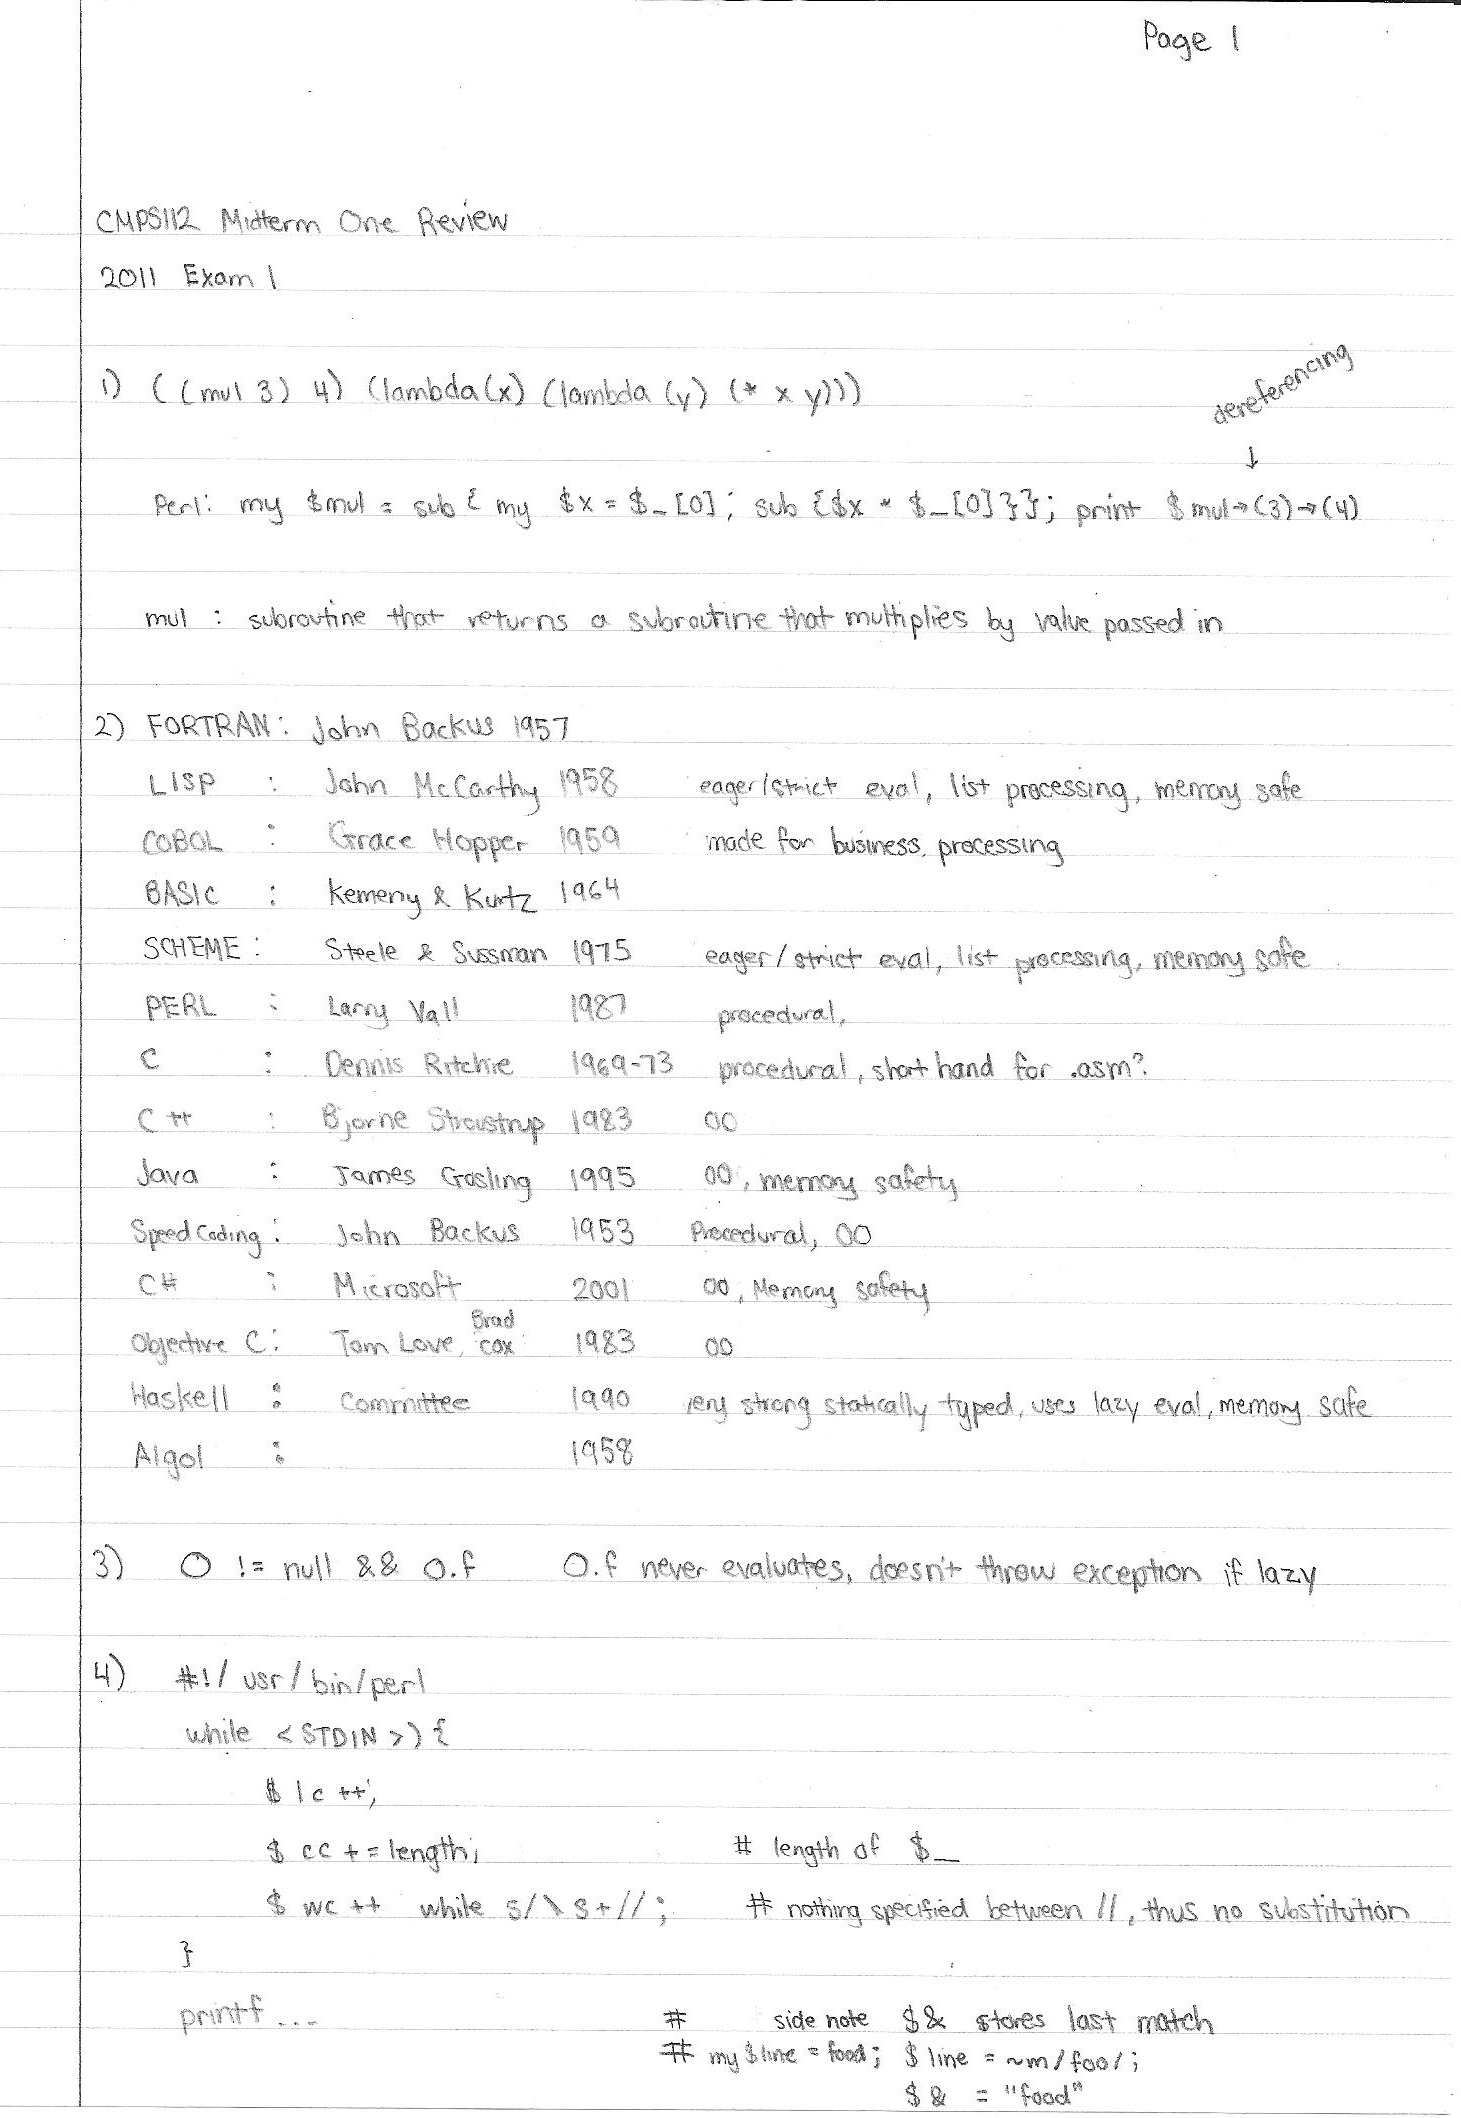 Page 1
CMPS112 Midterm One Review
2011 Exam 1
dereferencing
↓
1) ((mul 3) 4) (lambda(x) (lambda (y) (* x y)))
Perl: my $mul = sub { my $x = $_[0]; sub {$x * $_[0]}}; print $mul→(3)→(4)
mul : subroutine that returns a subroutine that multiplies by value passed in
2) FORTRAN: John Backus 1957
LISP : John McCarthy 1958 eager/strict eval, list processing, memory safe
COBOL : Grace Hopper 1959 made for business processing
BASIC : Kemeny & Kurtz 1964
SCHEME : Steele & Sussman 1975 eager/strict eval, list processing, memory safe
PERL : Larry Vall 1987 procedural,
C : Dennis Ritchie 1969-73 procedural, short hand for .asm?
C++ : Bjorne Stroustrup 1983 OO
Java : James Gosling 1995 OO, memory safety
Speed Coding : John Backus 1953 Procedural, OO
C# : Microsoft 2001 OO, Memory safety
Objective C : Tom Love, Brad Cox 1983 OO
Haskell : Committee 1990 very strong statically typed, uses lazy eval, memory safe
Algol : 1958
3) O != null && O.f O.f never evaluates, doesn't throw exception if lazy
4) #!/usr/bin/perl
while <STDIN>) {
$lc ++;
$cc += length; # length of $_
$wc ++ while s/\S+//; # nothing specified between //, thus no substitution
}
printf ... # side note $& stores last match
# my $line = food; $line = ~m/foo/;
$& = "food"